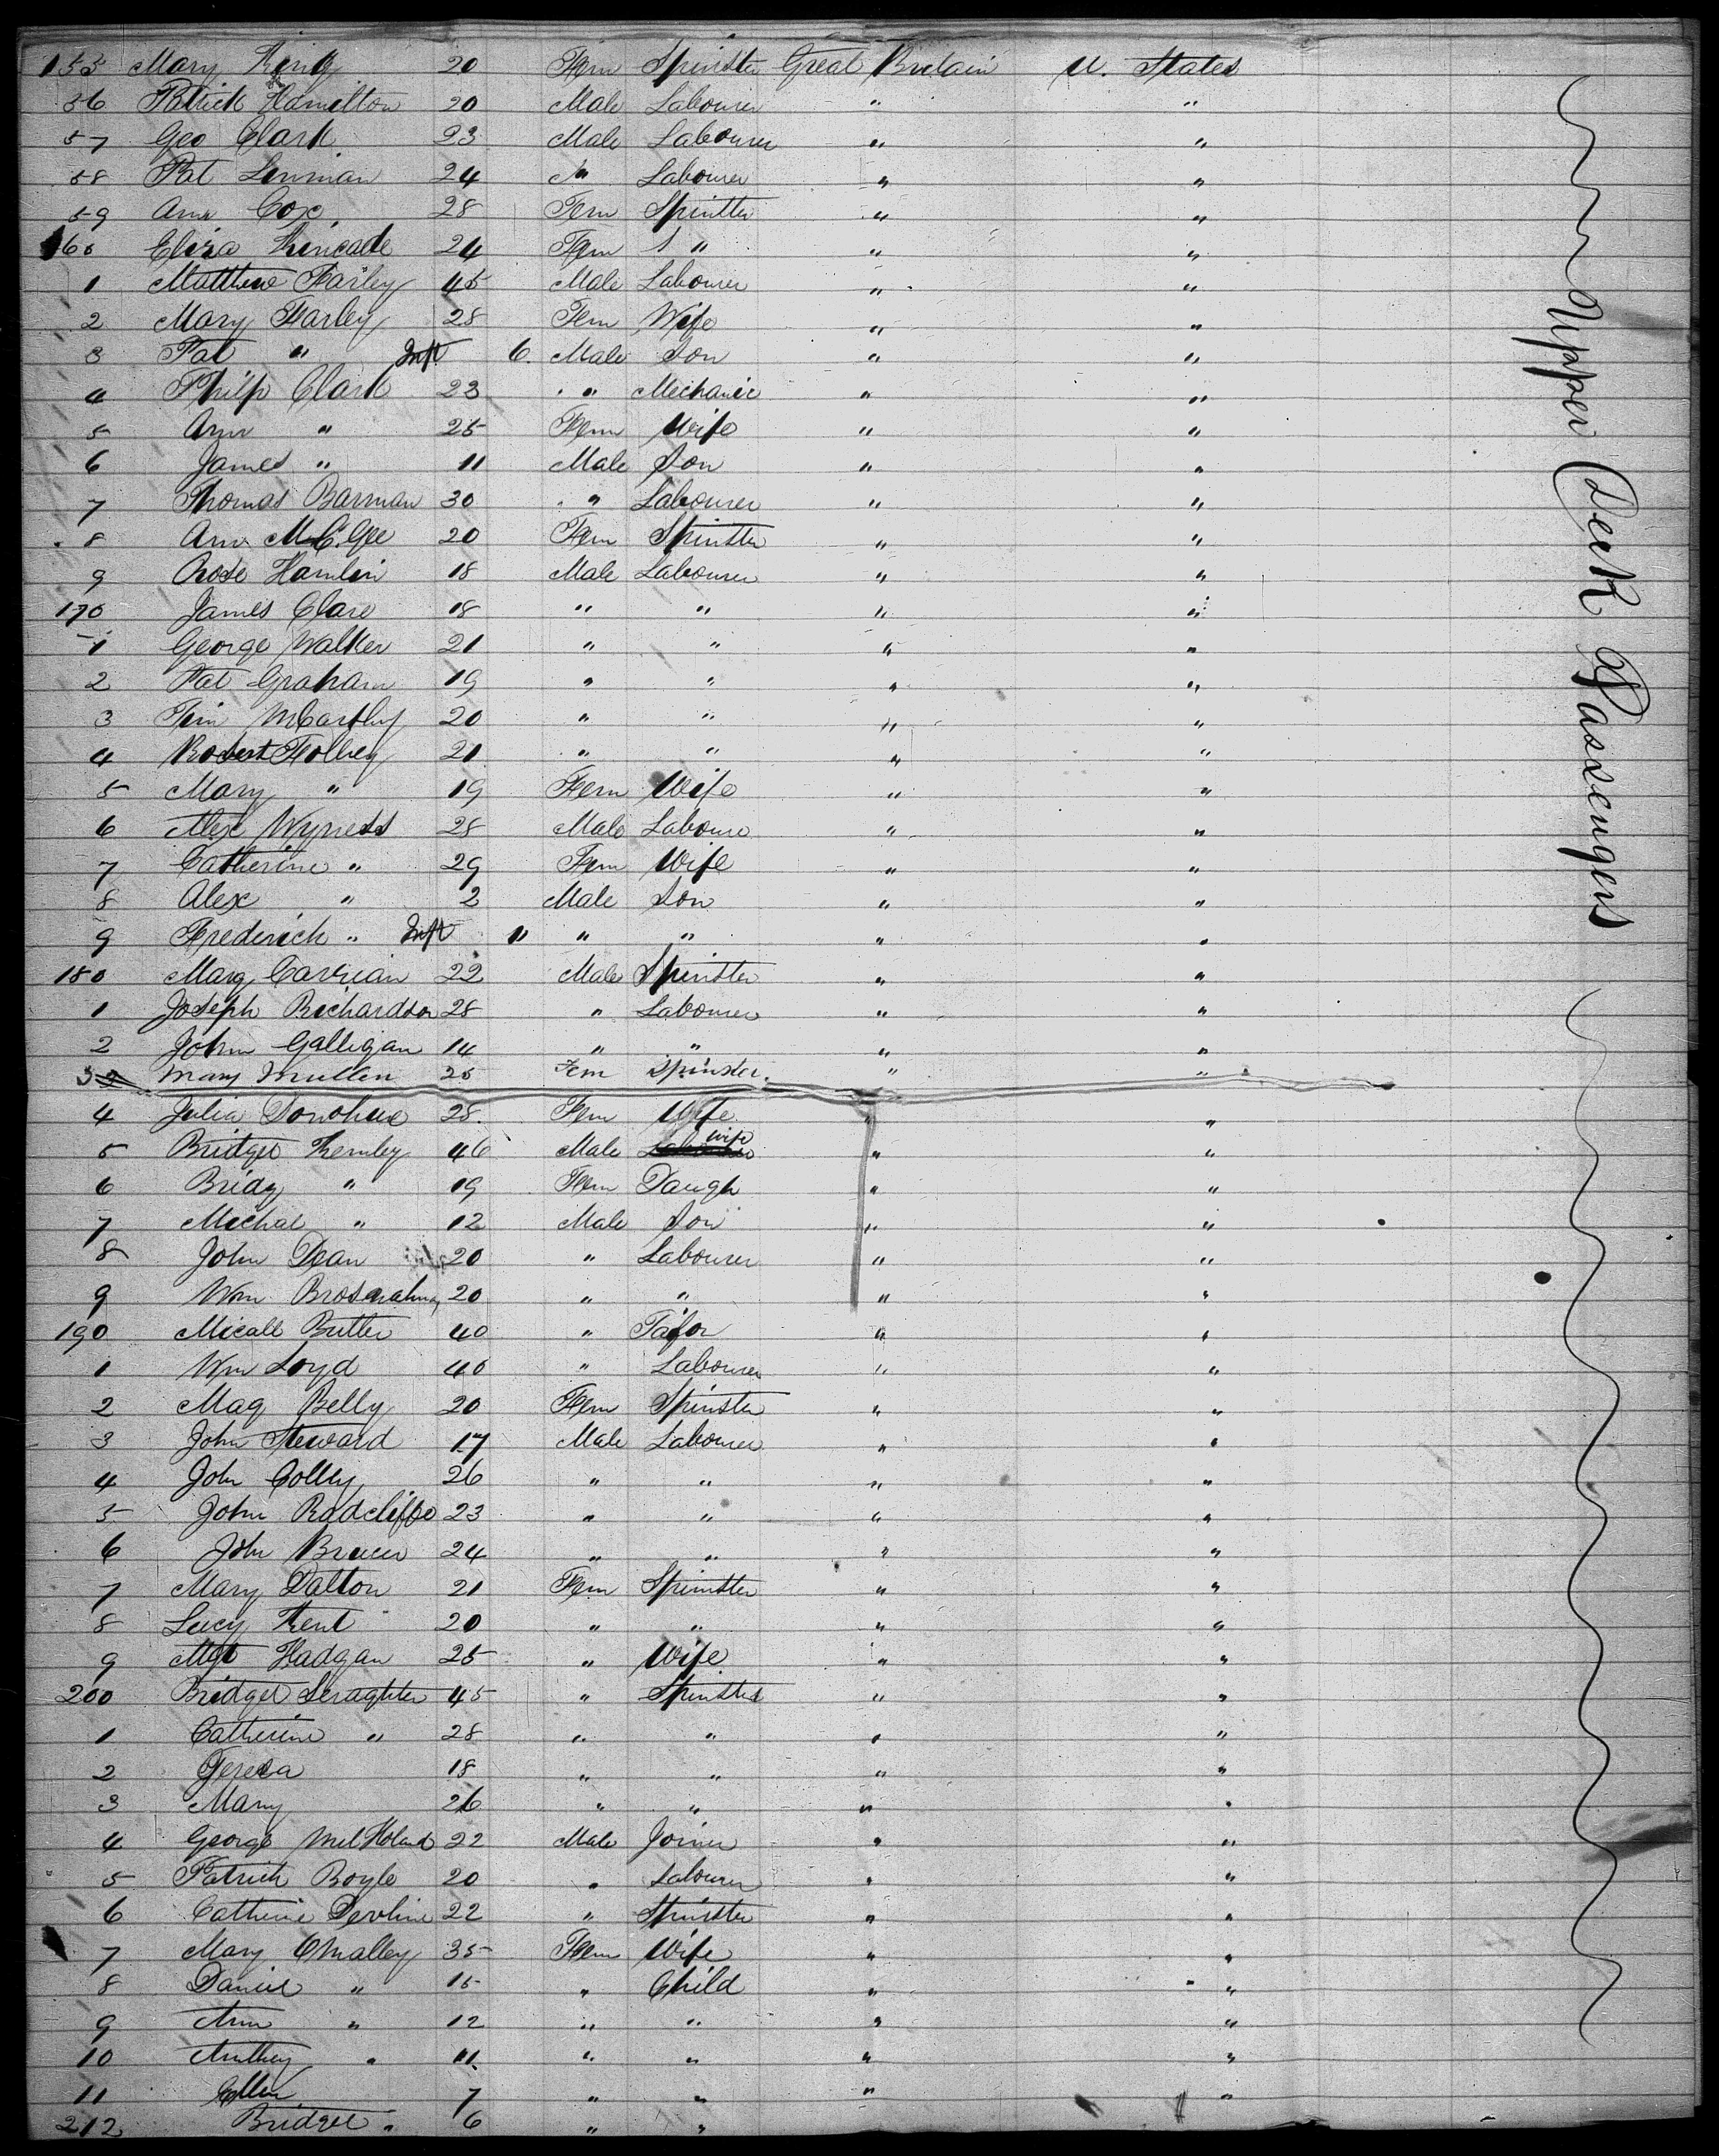 155 Mary King 20 Fem Spinster Great Britain U. States
56 Patrick Hamilton 20 Male Labourer " "
57 Geo Clark 23 Male Labourer " "
58 Pat Lenman 24 " Labourer " "
59 Ann Cox 28 Fem Spinster " "
160 Eliza Kincade 24 Fem S " " "
1 Matthew Farley 45 Male Labourer " "
2 Mary Farley 28 Fem Wife " "
3 Pat " Inft 6. Male Son " "
4 Philip Clark 23 " Mechanic " "
5 Ann " 25 Fem Wife " "
6 James " 11 Male Son " "
7 Thomas Barman 30 " Labourer " "
8 Ann McGee 20 Fem Spinster " "
9 Rose Hamlin 18 Male Labourer " "
170 James Clare 18 " " " "
1 George Walker 21 " " " "
2 Pat Graham 19 " " " "
3 Tim McCarthy 20 " " " "
4 Robert Holley 21 " " " "
5 Mary " 19 Fem Wife " "
6 Alex Wyness 28 Male Laboure " "
7 Catherine " 29 Fem Wife " "
8 Alex " 2 Male Son " "
9 Frederick " Inft 11 " " " "
180 Marg Carrian 22 Male Spinster " "
1 Joseph Richardson 28 " Labourer " "
2 John Galligan 14 " " " "
3 Mary Mullen 25 Fem Spinster. " "
4 Julia Donohue 28. Fem Wife " "
5 Bridget Kernley 46 Male wife " "
6 Bridg " 19 Fem Daugh " "
7 Michal " 12 Male Son " "
8 John Dean 20 " Labourer " "
9 Wm Brosnahan 20 " " " "
190 Micall Butler 40 " Taylor " "
1 Wm Loyd 40 " Labourer " "
2 Mag Belly 20 Fem Spinster " "
3 John Steward 17 Male Labourer " "
4 John Colley 26 " " " "
5 John Radcliffe 23 " " " "
6 John Brucer 24 " " " "
7 Mary Dalton 21 Fem Spinster " "
8 Lucy Kent 20 " " " "
9 Mgt Hadgan 25 " Wife " "
200 Bridget Seraghter 45 " Spinster " "
1 Catherine " 28 " " " "
2 Teresa 18 " " " "
3 Mary 26 " " " "
4 George Mulholand 22 Male Joiner " "
5 Patrick Boyle 20 " Labourer " "
6 Catherine Devline 22 " Spinster " "
7 Mary OMalley 35 Fem Wife " "
8 Daniel " 15 " Child " "
9 Ann " 12 " " " "
10 Anthey " 11. " " " "
11 Ellen 7 " " " "
212 Bridget " 6 " "
Upper Deck Passengers